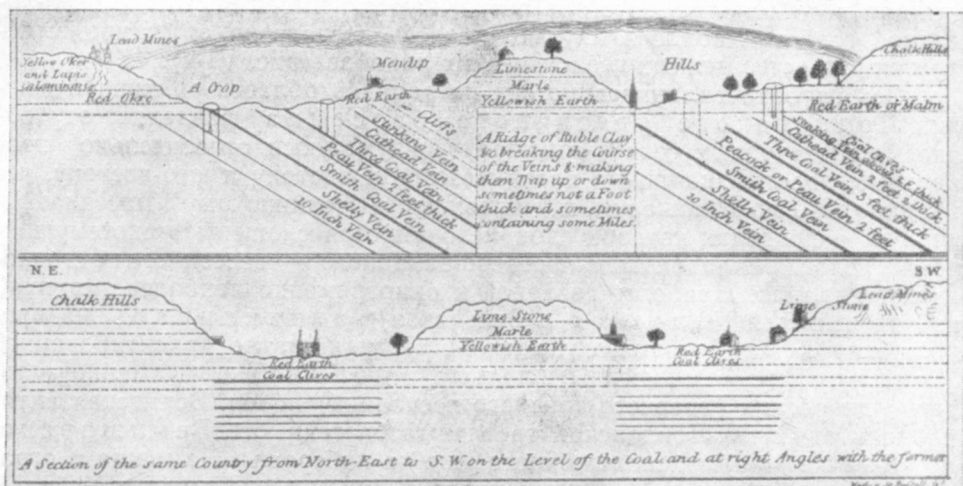 Lead Mines
Yellow Oker
and Lapis
Calominouse
Red Okre
A Crop
Mendip
Hills
Limestone
Marle
Yellowish Earth
Chalk Hills
Red Earth
Cliffs
Red Earth or Malm
Sunking Vein
Cathead Vein
Three Coal Vein
Peau Vein 2 feet thick
Smith Coal Vein
Shelly Vein
10 Inch Vein
A Ridge of Ruble Clay
&c breaking the Course
of the Veins & making
them Trap up or down
sometimes not a Foot
thick and sometimes
containing some Miles.
Coal Clives
Sunking Vein
Cathead Vein 2 Feet 2 thick
Three Coal Vein 3 feet thick
Peacock or Peau Vein 2 feet
Smith Coal Vein
Shelly Vein
10 Inch Vein
N.E.
S W
Chalk Hills
Lime Stone
Marle
Yellowish Earth
Lime Stone
Lead Mines
Red Earth
Coal Clives
Red Earth
Coal Clives
A Section of the same Country from North-East to S.W. on the Level of the Coal and at right Angles with the former